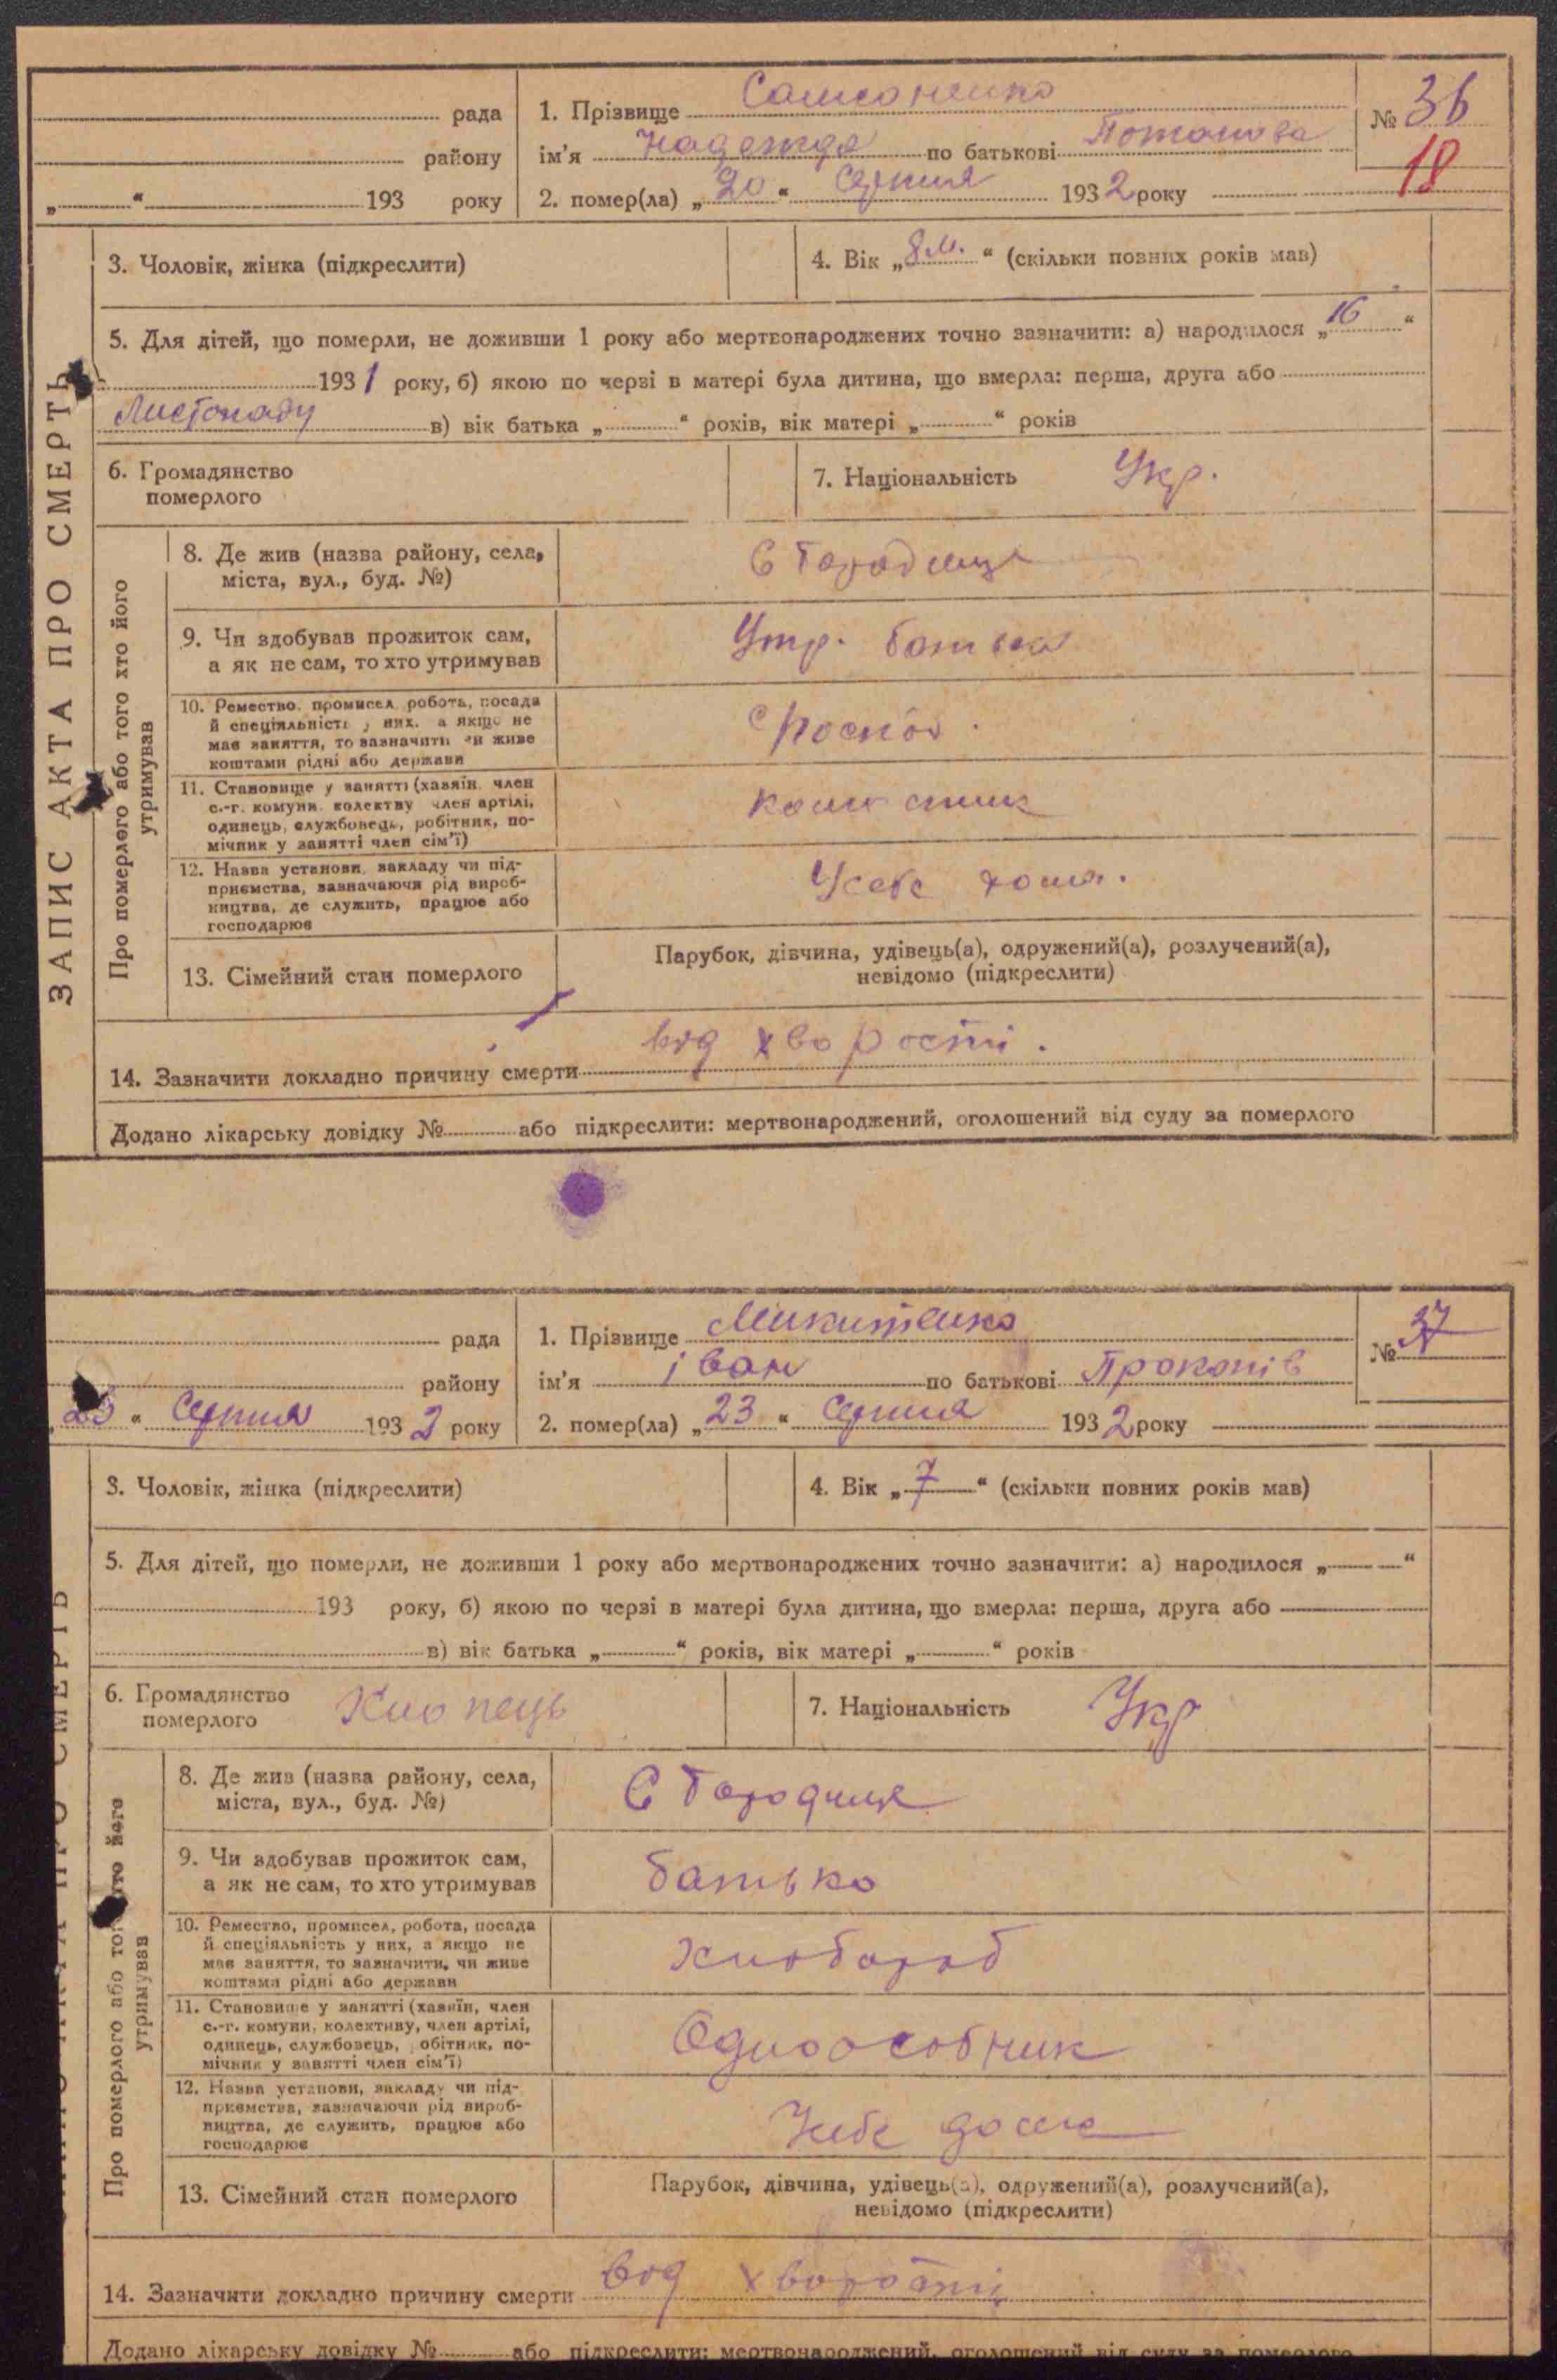 ЗАПИС АКТА ПРО СМЕРТЬ
рада
району
„ “ 193 року
1. Прізвище Самсоненко
ім'я Надежда по батькові Потапова
2. помер(ла) „20“ Серпня 1932 року
№ 36
18
3. Чоловік, жінка (підкреслити)
4. Вік „8 м.“ (скільки повних років мав)
5. Для дітей, що померли, не доживши 1 року або мертвонароджених точно зазначити: а) народилося „16“
1931 року, б) якою по черзі в матері була дитина, що вмерла: перша, друга або
Листопаду в) вік батька „ “ років, вік матері „ “ років
6. Громадянство
померлого
7. Національність Укр.
Про померлого або того хто його
утримував
8. Де жив (назва району, села,
міста, вул., буд. №)
С Городище
9. Чи здобував прожиток сам,
а як не сам, то хто утримував
Утр. батько
10. Ремество, промисел, робота, посада
й спеціяльність у них, а якщо не
має заняття, то зазначити чи живе
коштами рідні або держави
11. Становище у занятті (хазяїн, член
с.-г. комуни, колективу, член артілі,
одинець, службовець, робітник, по-
мічник у занятті член сім'ї)
12. Назва установи, закладу чи під-
приємства, зазначаючи рід вироб-
ництва, де служить, працює або
господарює
13. Сімейний стан померлого
Парубок, дівчина, удівець(а), одружений(а), розлучений(а),
невідомо (підкреслити)
14. Зазначити докладно причину смерти від хворости.
Додано лікарську довідку № або підкреслити: мертвонароджений, оголошений від суду за померлого
рада
району
„23“ Серпня 1932 року
1. Прізвище Микитенко
ім'я іван по батькові Прокопів
2. помер(ла) „23“ Серпня 1932 року
№ 37
3. Чоловік, жінка (підкреслити)
4. Вік „7“ (скільки повних років мав)
5. Для дітей, що померли, не доживши 1 року або мертвонароджених точно зазначити: а) народилося „ “
193 року, б) якою по черзі в матері була дитина, що вмерла: перша, друга або
в) вік батька „ “ років, вік матері „ “ років
6. Громадянство
померлого
Хлопець
7. Національність Укр
Про померлого або того хто його
утримував
8. Де жив (назва району, села,
міста, вул., буд. №)
С Городище
9. Чи здобував прожиток сам,
а як не сам, то хто утримував
батько
10. Ремество, промисел, робота, посада
й спеціяльність у них, а якщо не
має заняття, то зазначити, чи живе
коштами рідні або держави
хлібороб
11. Становище у занятті (хазяїн, член
с.-г. комуни, колективу, член артілі,
одинець, службовець, робітник, по-
мічник у занятті член сім'ї)
Одноособник
12. Назва установи, закладу чи під-
приємства, зазначаючи рід вироб-
ництва, де служить, працює або
господарює
13. Сімейний стан померлого
Парубок, дівчина, удівець(а), одружений(а), розлучений(а),
невідомо (підкреслити)
14. Зазначити докладно причину смерти від хворости
Додано лікарську довідку № або підкреслити: мертвонароджений, оголошений від суду за померлого